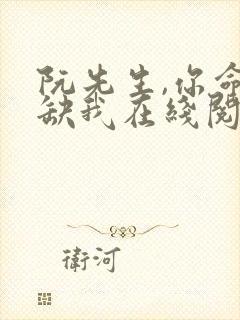 阮先生,你命
缺我在綫閱
衛河